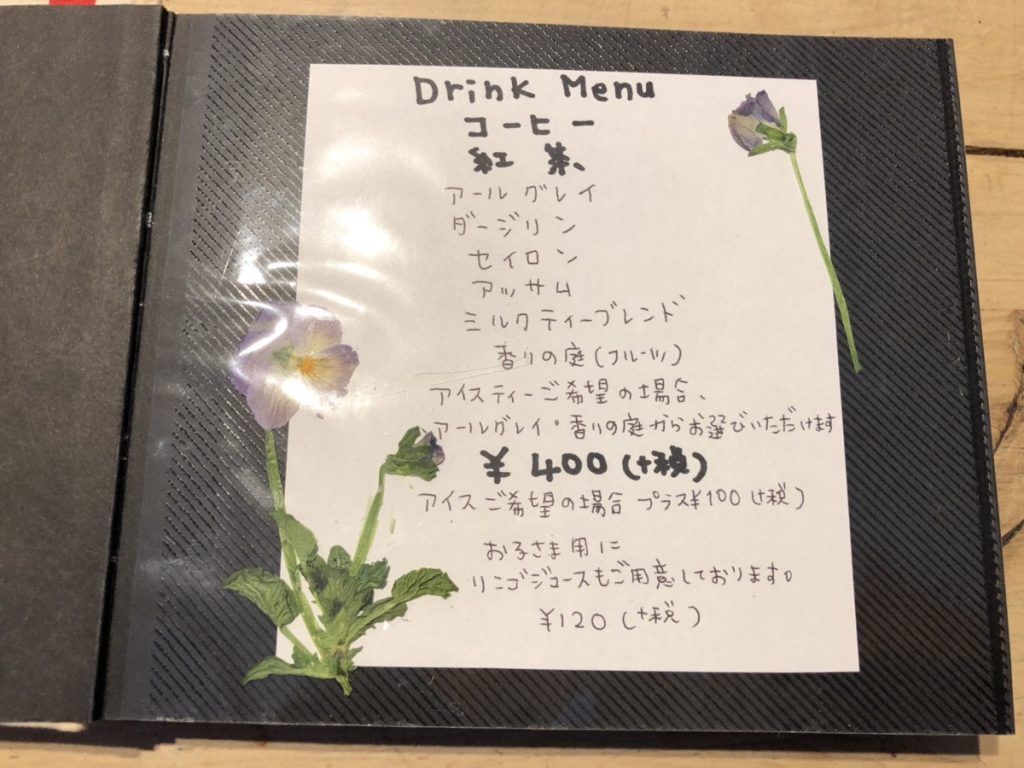 Drink Menu
コーヒー
紅茶、
アールグレイ
ダージリン
セイロン
アッサム
ミルクティーブレンド
香りの庭(フルーツ)
アイスティーご希望の場合、
アールグレイ・香りの庭からお選びいただけます
¥400(+税)
アイスご希望の場合 プラス¥100(+税)
お子さま用に
リンゴジュースもご用意しております。
¥120(+税)